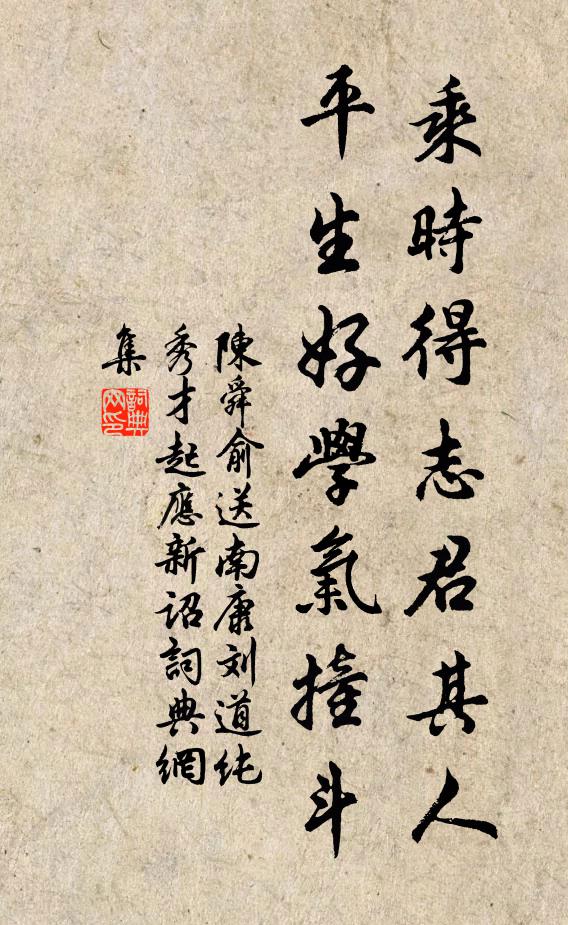 乘時得志君其人
平生好學氣撞斗
陳舜俞送南康刘道纯
秀才起應新詔詞典網
集
詞典
网印